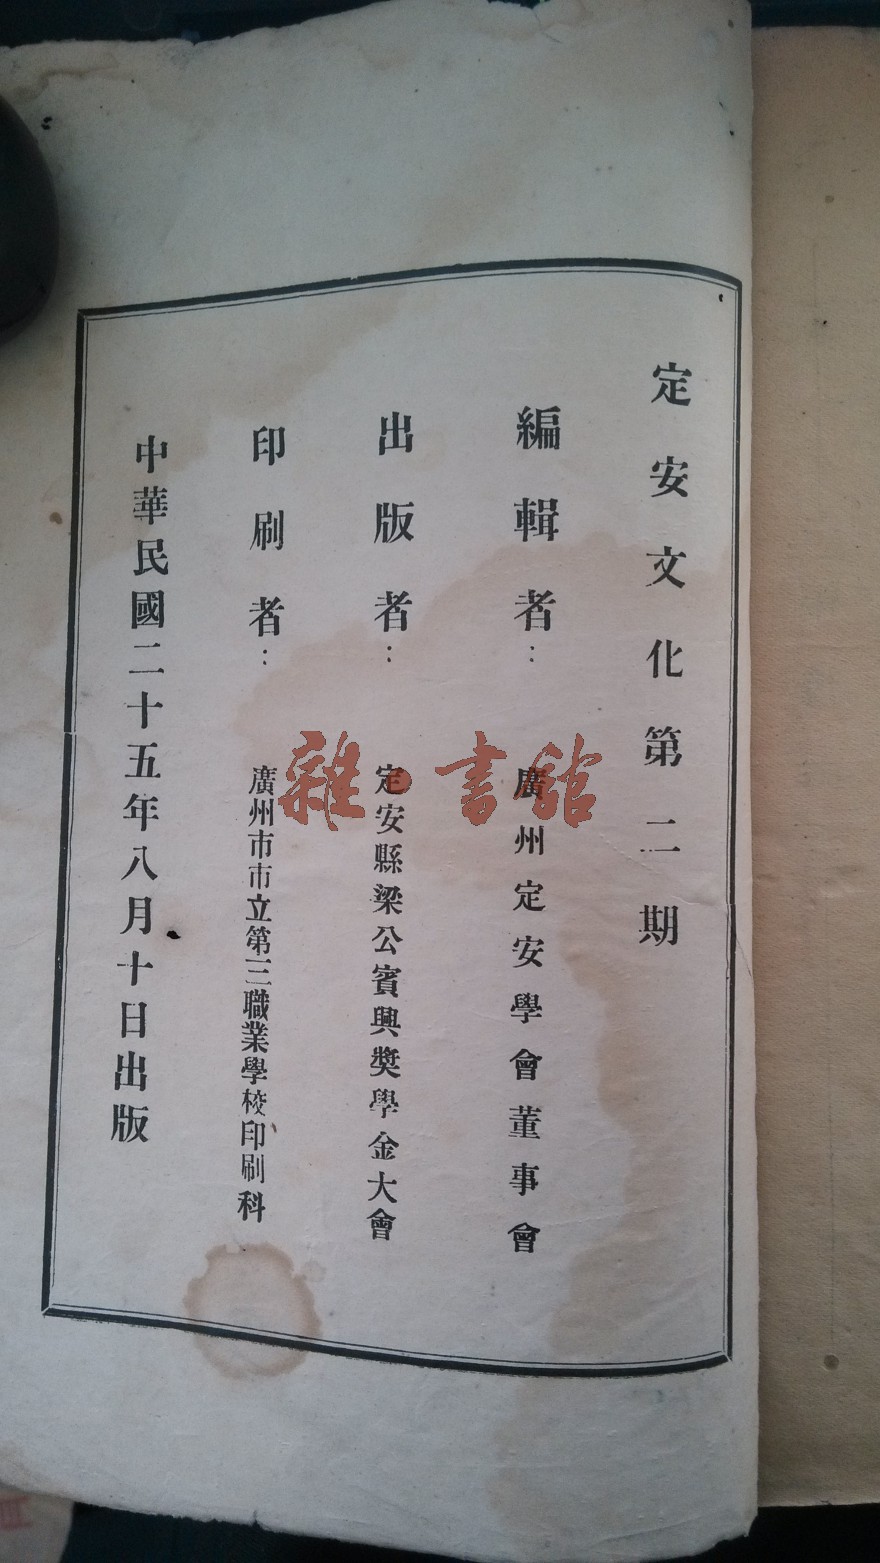 定安文化第二期
編輯者：廣州定安學會董事會
出版者：定安縣梁公賓興獎學金大會
印刷者：廣州市市立第三職業學校印刷科
中華民國二十五年八月十日出版
雜·書館